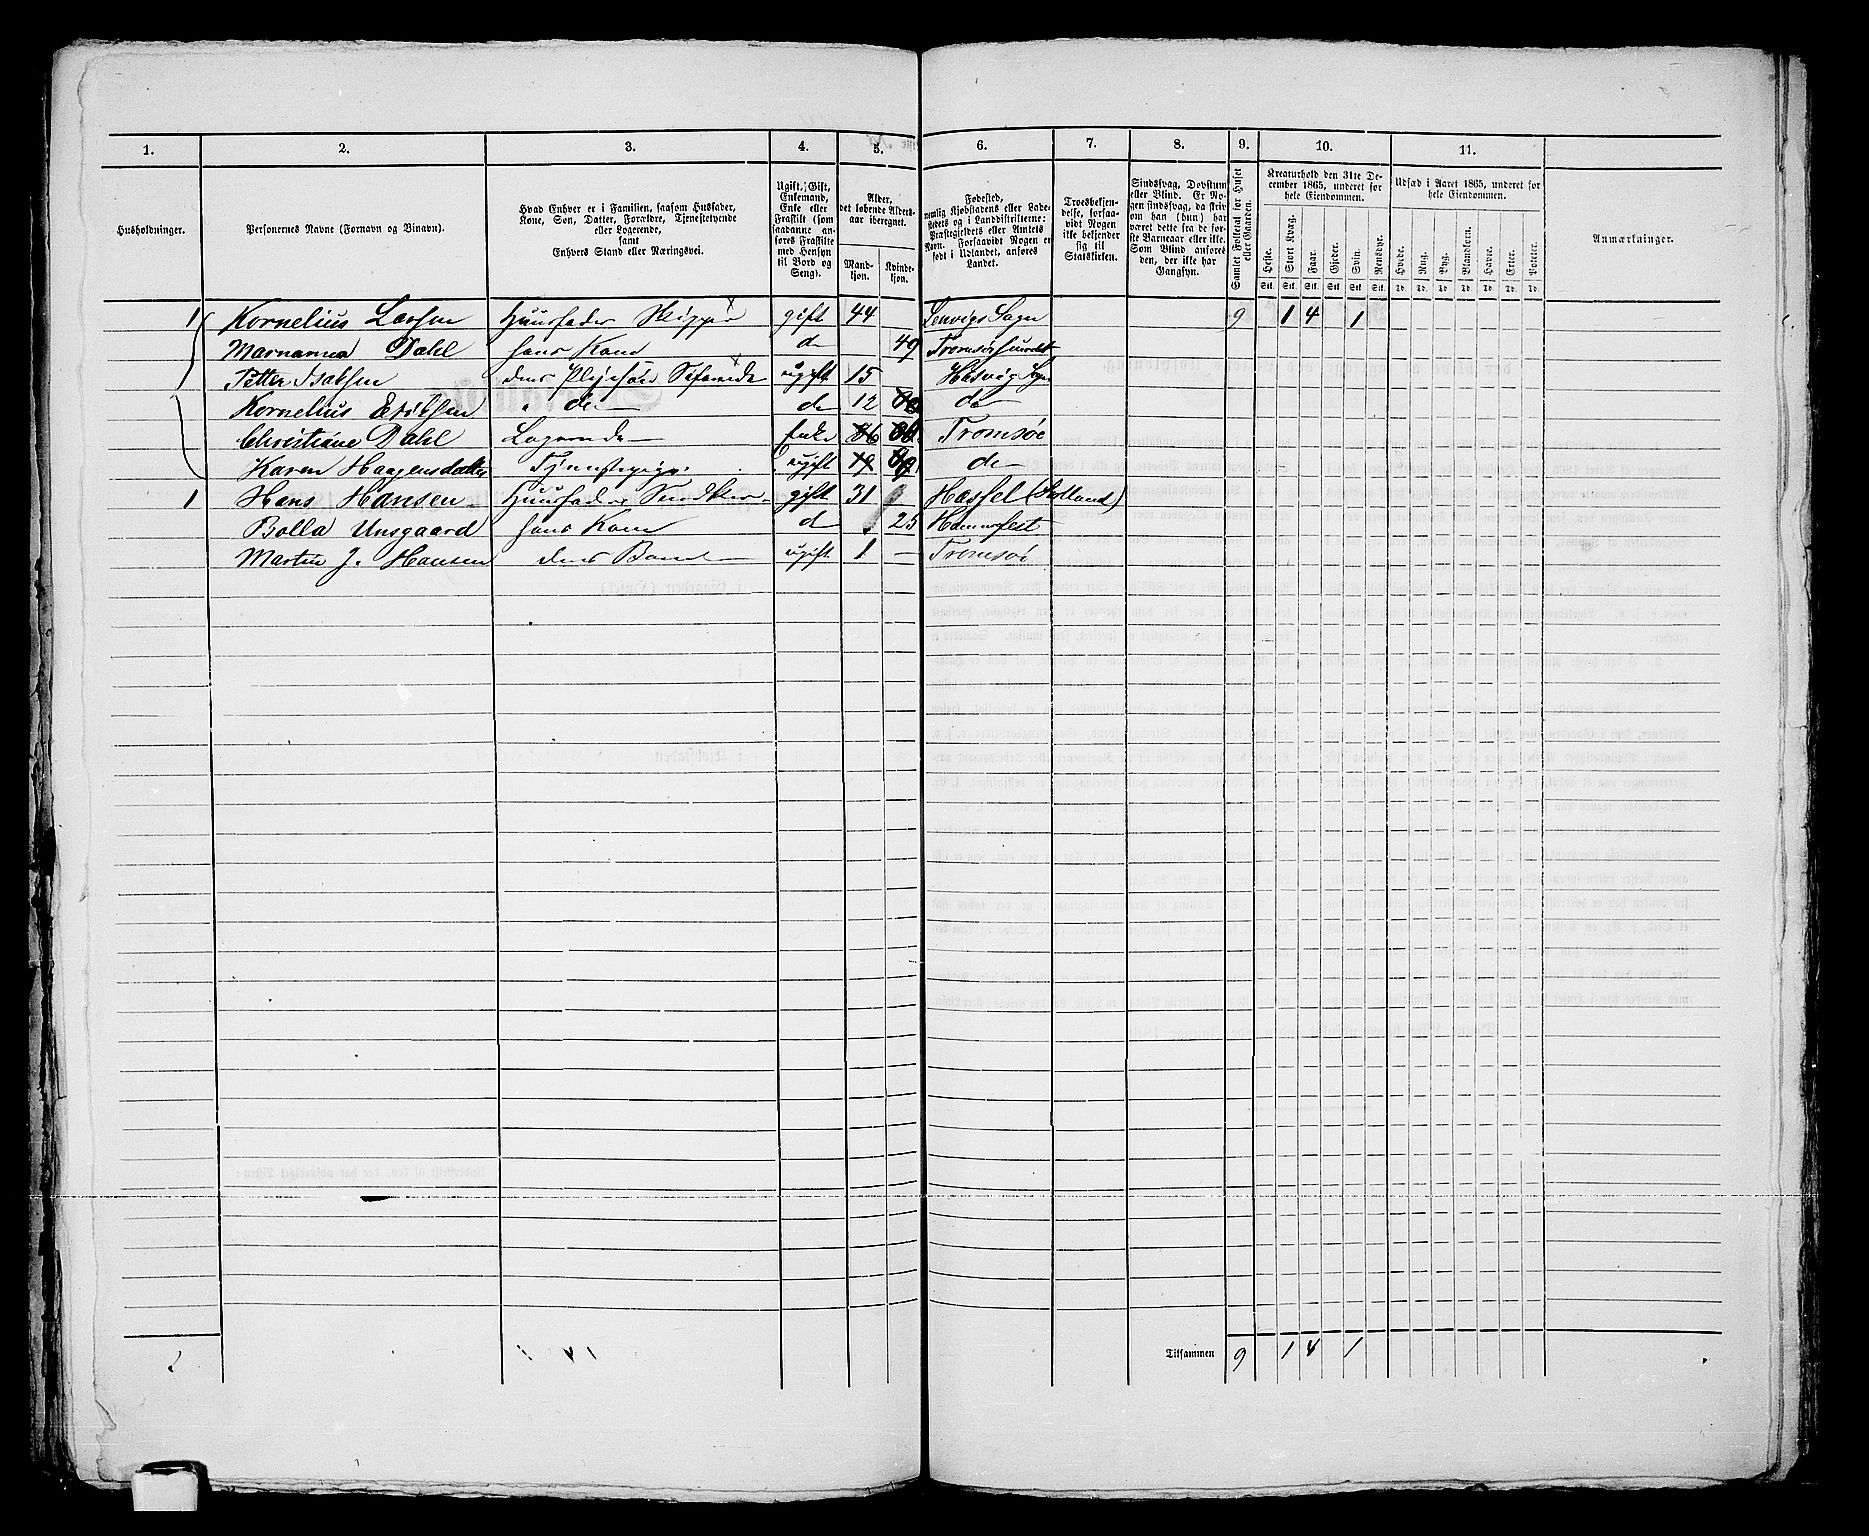 1. 2. 3. 4. 5. 6. 7. 8. 9. 10. 11.
Husholdninger.
Personernes Navne (Fornavn og Binavn).
Hvad Enhver er i Familien, saasom Husfader,
Kone, Søn, Datter, Forældre, Tjenestetyende
eller Logerende,
samt
Enhvers Stand eller Næringsvei.
Ugift, Gift,
Enkemand,
Enke eller
Fraskilt (som
saadanne an-
føres Fraskilte
med Hensyn
til Bord og
Seng).
Alder,
det løbende Alders-
aar iberegnet.
Mand-
kjøn.
Kvinde-
kjøn.
Fødested,
nemlig Kjøbstadens eller Lade-
stedets og i Landdistrikterne:
Præstegjeldets eller Amtets
Navn. Forsaavidt Nogen er
født i Udlandet, anføres
Landet.
Troesbekjen-
delse, forsaa-
vidt Nogen
ikke bekjender
sig til
Statskirken.
Sindssvag, Døvstum
eller Blind. Er No-
gen sindssvag, da skriv
om han (hun) har
været dette fra de før-
ste Barneaar eller ikke.
Som Blind anføres
den, der ikke har
Gangsyn.
Samlet Folketal for Huset
eller Gaarden.
Kreaturhold den 31te De-
cember 1865, underet for
hele Eiendommen.
Heste. Stort Kvæg. Faar. Gjeder. Sviin. Rensdyr.
Stk. Stk. Stk. Stk. Stk. Stk.
Udsæd i Aaret 1865, underet for
hele Eiendommen.
Hvede. Rug. Byg. Blandkorn. Havre. Erter. Poteter.
Td. Td. Td. Td. Td. Td. Td.
Anmærkninger.
1 Kornelius Larsen Huusfader Skipper gift 44 Lenvigs Sogn 9 1 4 1
Marnanna Dahl hans Kone do 49 Tromsø
Petter Isaksen deres Plejesøn ugift 15 Hasvig Sogn
Kornelius do do 12 do
Christiane Dahl Logerende Enke 86 Tromsøe
Karen Haagensdatter Tjenestepige ugift 19 do
1 Hans Hansen Huusfader gift 31 Hassel
Bolla Unsgaard hans Kone do 25 Hammerfest
Martin J. Hansen deres Barn ugift 1 Tromsø
Tilsammen 9 1 4 1